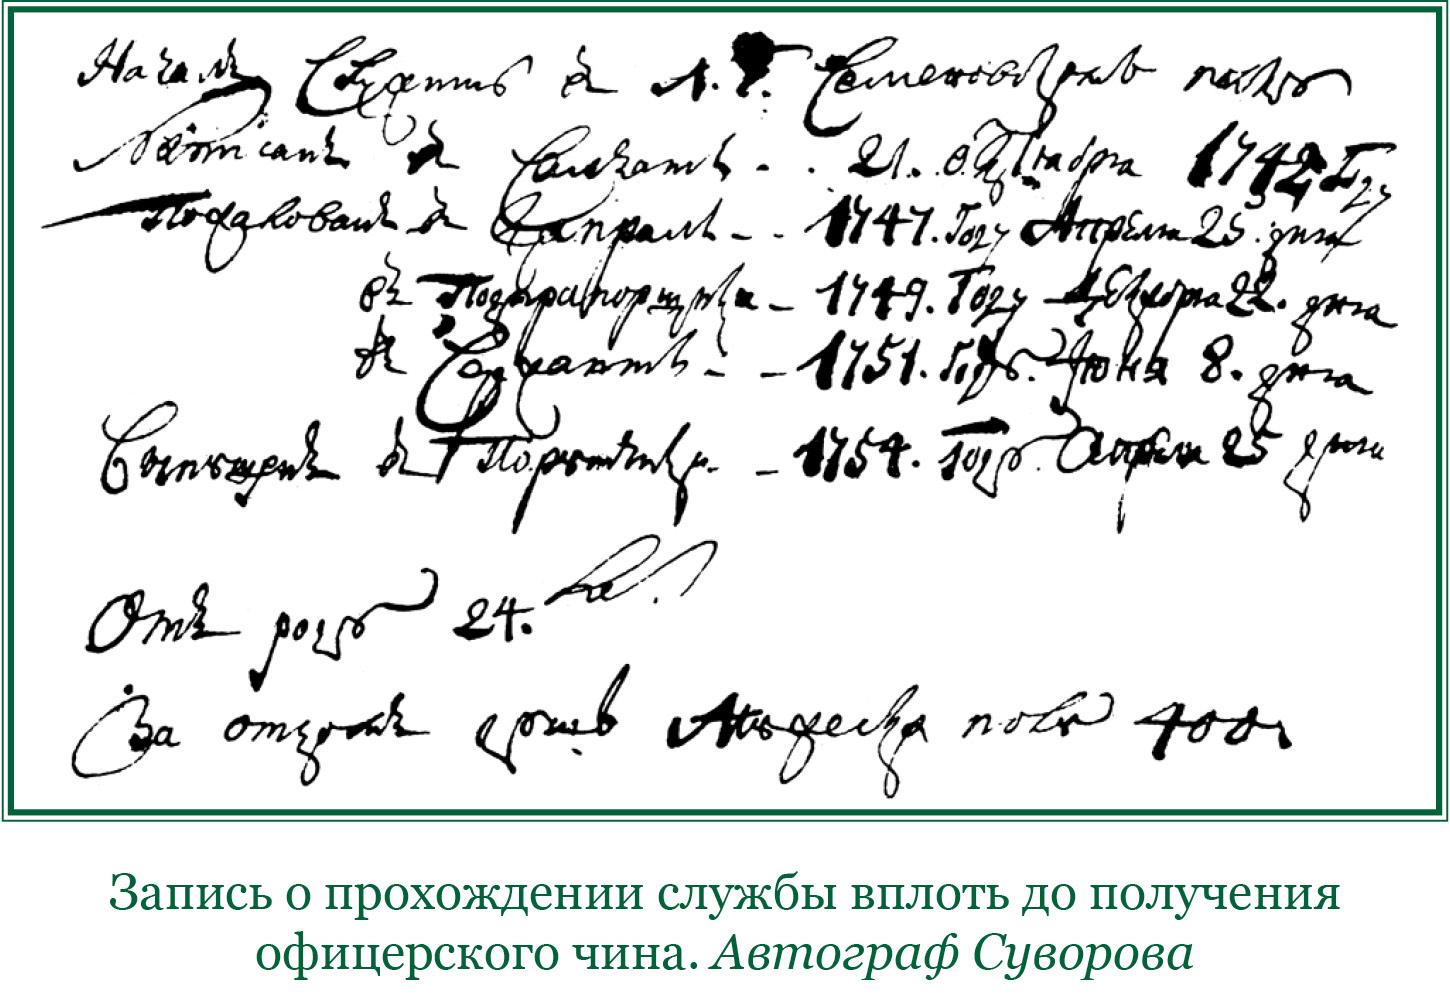 Началъ Служить въ Л. Г. Семеновскомъ полку
Написанъ въ Салдаты - . 21. Октября 1742 Году
Пожалованъ въ Капралы - . 1747. Году Апреля 25. дня
въ Подпрапорщики - 1749. Году Декабря 22. дня
въ Сержанты - - 1751. Году. Июня 8. дня
Выпущенъ въ Порутчики - 1754. Году. Апреля 25 дня
Отъ роду 24.
За отцомъ душъ Мужеска полу 400.
Запись о прохождении службы вплоть до получения
офицерского чина. Автограф Суворова